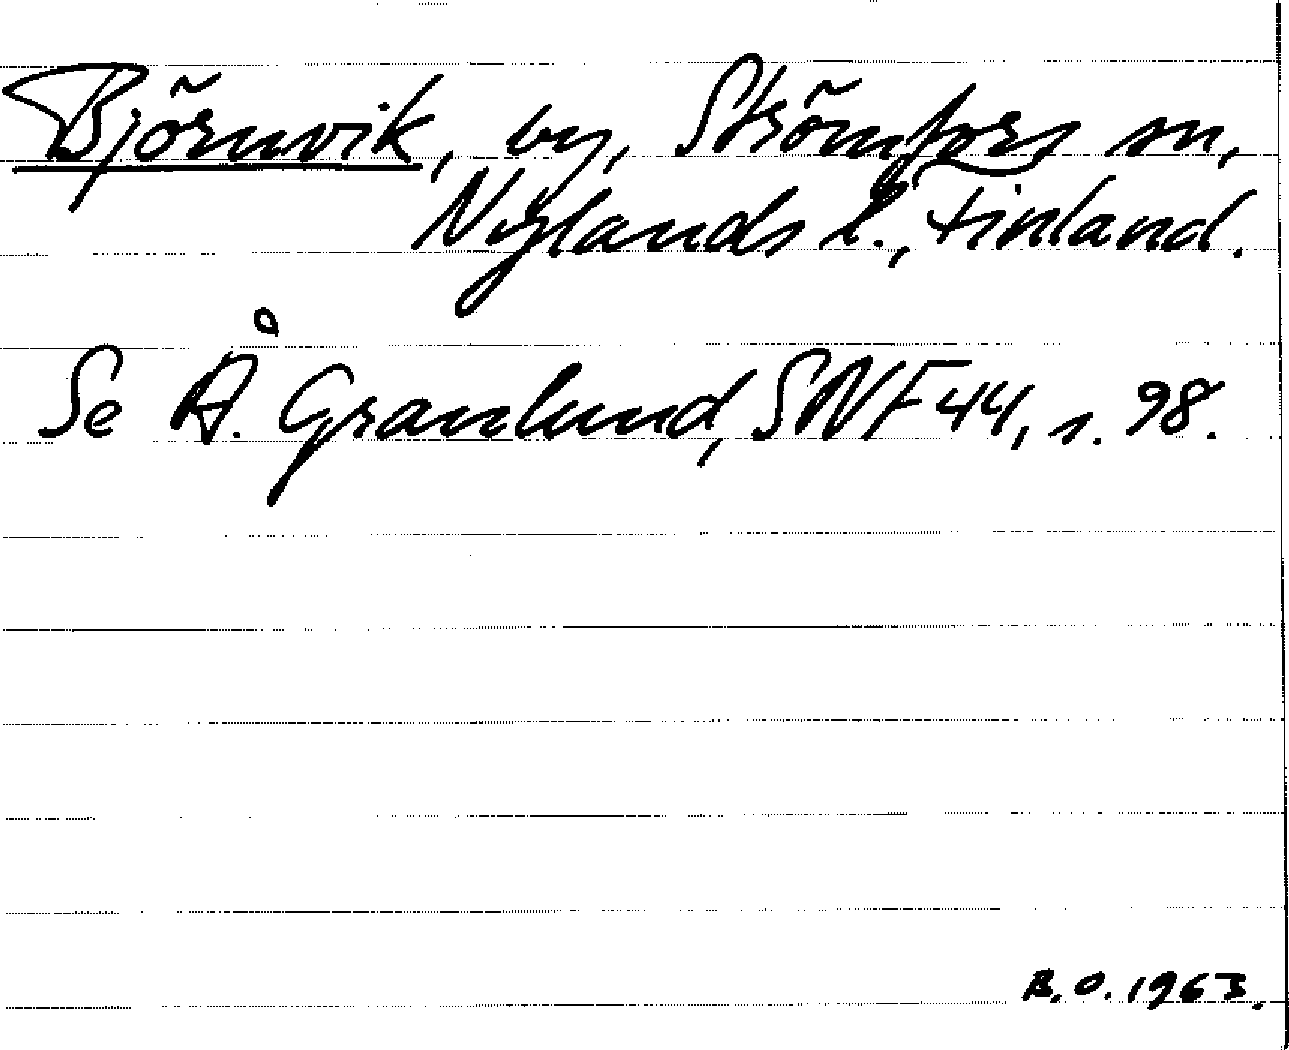 Björnvik, by, Strömfors sn,
Nylands l., Finland.
Se Å. Granlund, SNF 44, s. 98.
B. O. 1963.